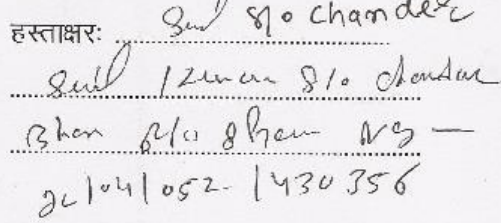 हस्ताक्षरः Sunil S/o Chander
Sunil Kumar S/o Chandar
Bhan R/o Sham Ng —
1430356